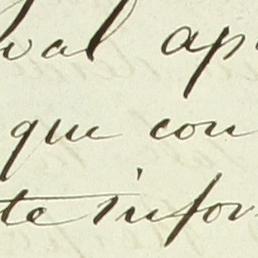 val ap
que con
te infor